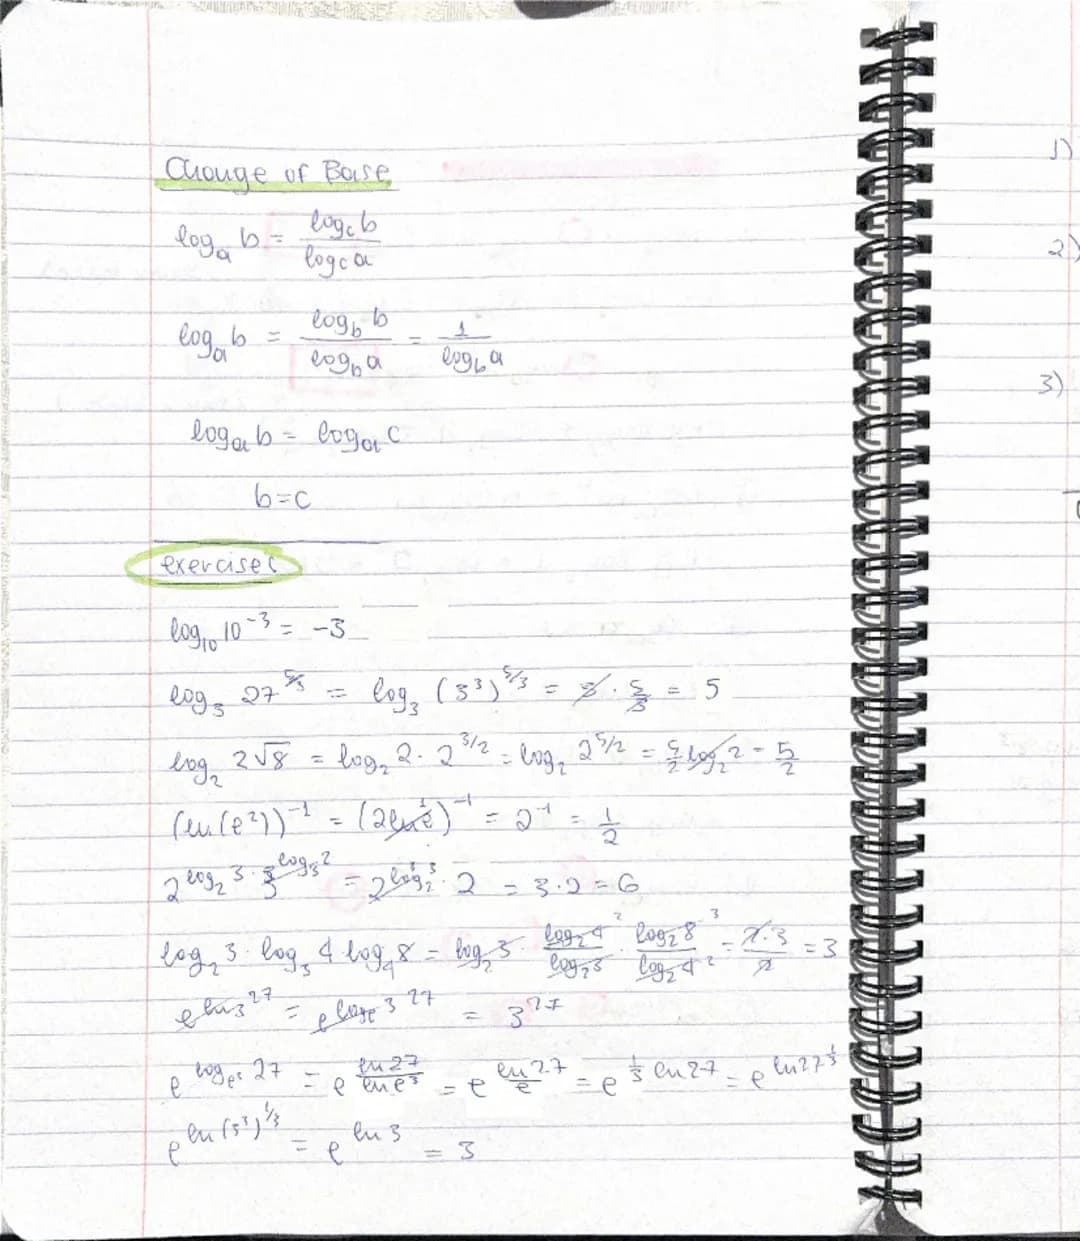 Change of Base
log_a b = log_c b / log_c a
log_a b = log_b b / log_b a = 1 / log_b a
log_a b = log_a c
b=c
exercises
log_10 10^-3 = -3
log_3 27^5/3 = log_3 (3^3)^5/3 = 3 · 5/3 = 5
log_2 2√8 = log_2 2 · 2^3/2 = log_2 2^5/2 = 5/2 log_2 2 = 5/2
(ln(e^2))^-1 = (2 ln e^1)^-1 = 2^-1 = 1/2
2^log_2 3 · 3^log_3 2 = 2^log_2 3 · 2 = 3·2=6
log_2 3 · log_3 4 · log_4 8 = log_2 3 · log_2 4^2 / log_2 3 · log_2 8^3 / log_2 4^2 = 2·3 / 2 = 3
e^ln 3^27 = e^log_e 3^27 = 3^27
e^log_e^3 27 = e^ln 27 / ln e^3 = e^ln 27 / e = e^1/3 ln 27 = e^ln 27^1/3
e^ln (3^3)^1/3 = e^ln 3 = 3
1)
2)
3)